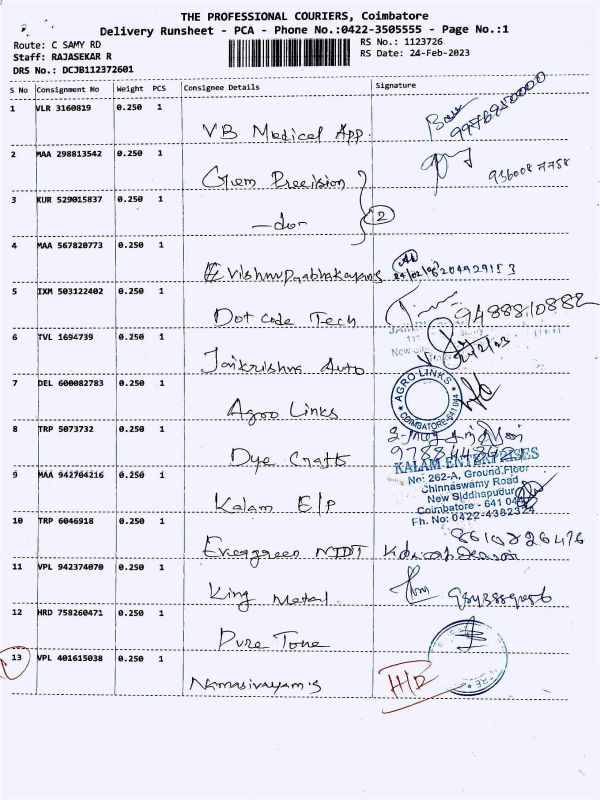 THE PROFESSIONAL COURIERS, Coimbatore
Delivery Runsheet - PCA - Phone No.:0422-3505555 - Page No.:1
Route: C SAMY RD
RS No.: 1123726
Staff: RAJASEKAR R
RS Date: 24-Feb-2023
DRS No.: DCJB112372601
S No Consignment No Weight PCS Consignee Details Signature
1 VLR 3160819 0.250 1
VB Medical App.
2 MAA 298813542 0.250 1
Gem Precision
3 KUR 529015837 0.250 1
-do-
2
4 MAA 567820773 0.250 1
Vishnuprabhakarans
5 IXM 503122402 0.250 1
Dot code Tech 9488810882
6 TVL 1694739 0.250 1
Jaikrishna Auto
7 DEL 600082783 0.250 1
AGRO LINKS
COIMBATORE-641 044
Agro Links
8 TRP 5073732 0.250 1
Dye Crafts
9 MAA 942704216 0.250 1
KALAM ENTERPRISES
No: 262-A, Ground Floor
Chinnaswamy Road
New Siddhapudur
Coimbatore - 641 044
Ph. No: 0422-4382324
Kalam E/P
10 TRP 6046918 0.250 1
8610826476
Evergreen
11 VPL 942374070 0.250 1
King Metal
12 HRD 758260471 0.250 1
Pure Tone
13 VPL 401615038 0.250 1
Namasivayam's H/D